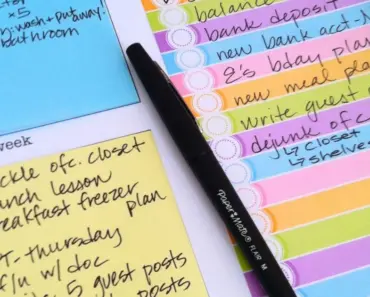 x5
wash + put away
bathroom
week
ckle ofc. closet
nch lesson
eakfast freezer
plan
T-thursday
f/u w/ doc
5 guest posts
posts
balance
bank deposit
new bank acct-
's bday plan
new meal pla
write guest
dejunk of c
↳ closet
↳ shelves
Paper Mate FLAIR M